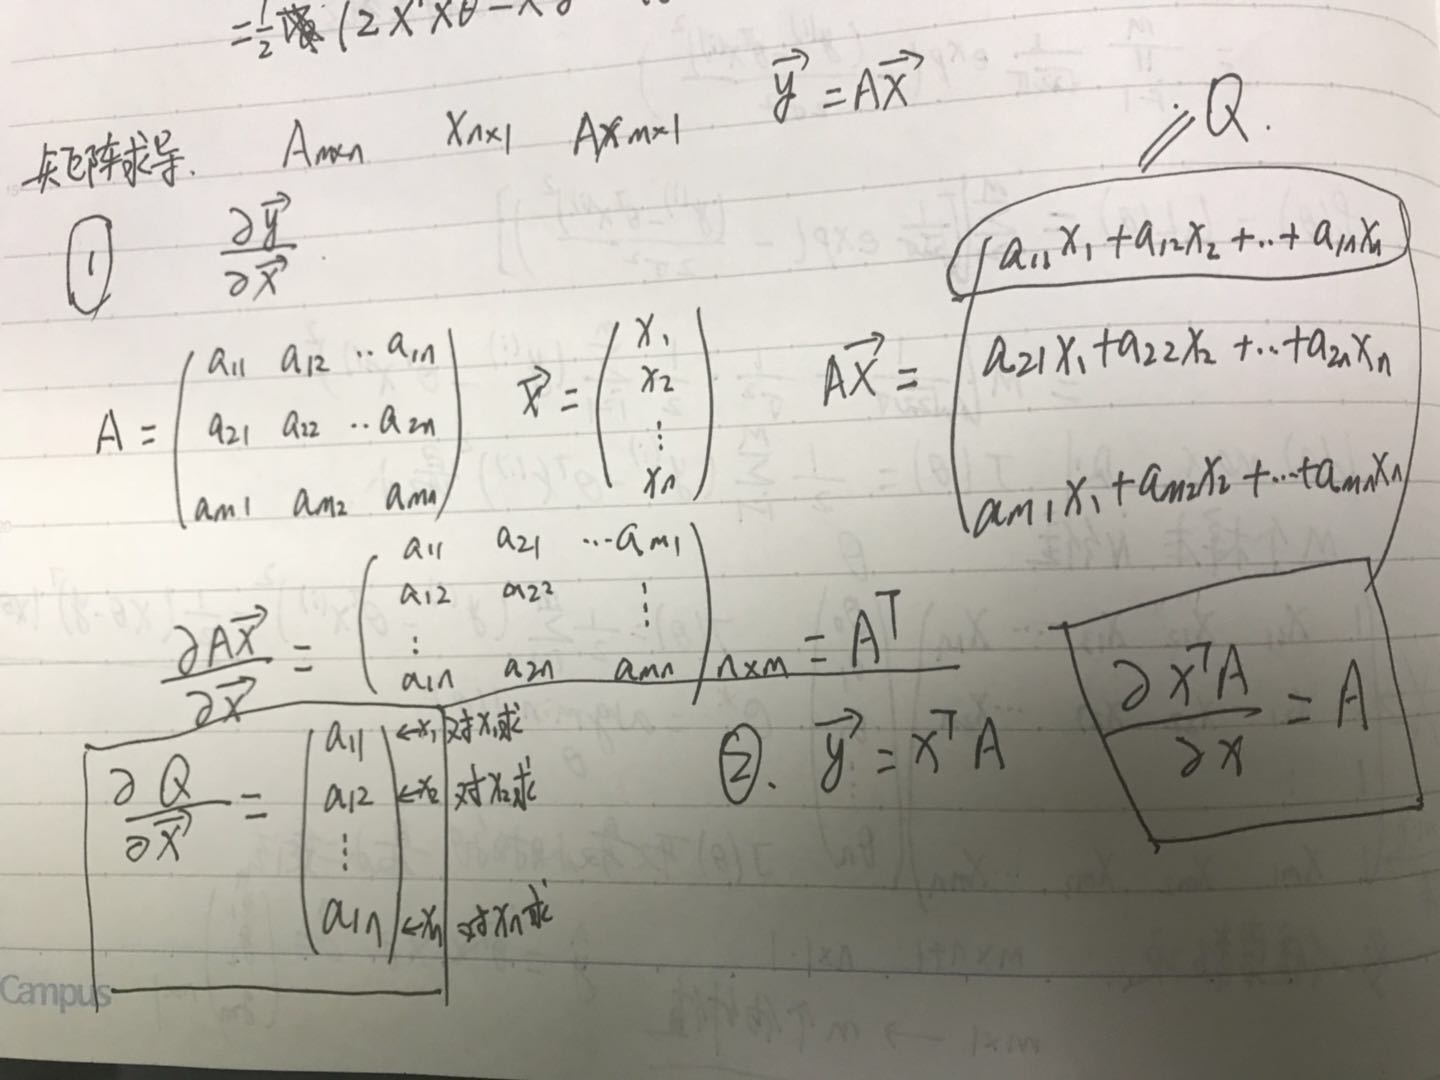 =1/2 (2XᵀXθ-Xᵀy
矩阵求导. Am×n Xn×1 AXm×1 y⃗=AX⃗
Q.
① ∂y⃗/∂X⃗
A = (a11 a12 ..a1n
a21 a22 ..a2n
am1 am2 amn)
X⃗ = (x1
x2
⋮
xn)
AX⃗ = (a11x1+a12x2+..+a1nxn
a21x1+a22x2+..+a2nxn
am1x1+am2x2+...+amnxn)
∂AX⃗/∂X⃗ = (a11 a21 ...am1
a12 a22 ⋮
⋮
a1n a2n amn)n×m = Aᵀ
∂Q/∂X⃗ = (a11 ←x1 对x1求
a12 ←x2 对x2求
⋮
a1n ←xn 对xn求)
②. y⃗ = xᵀA
∂xᵀA/∂x = A
Campus